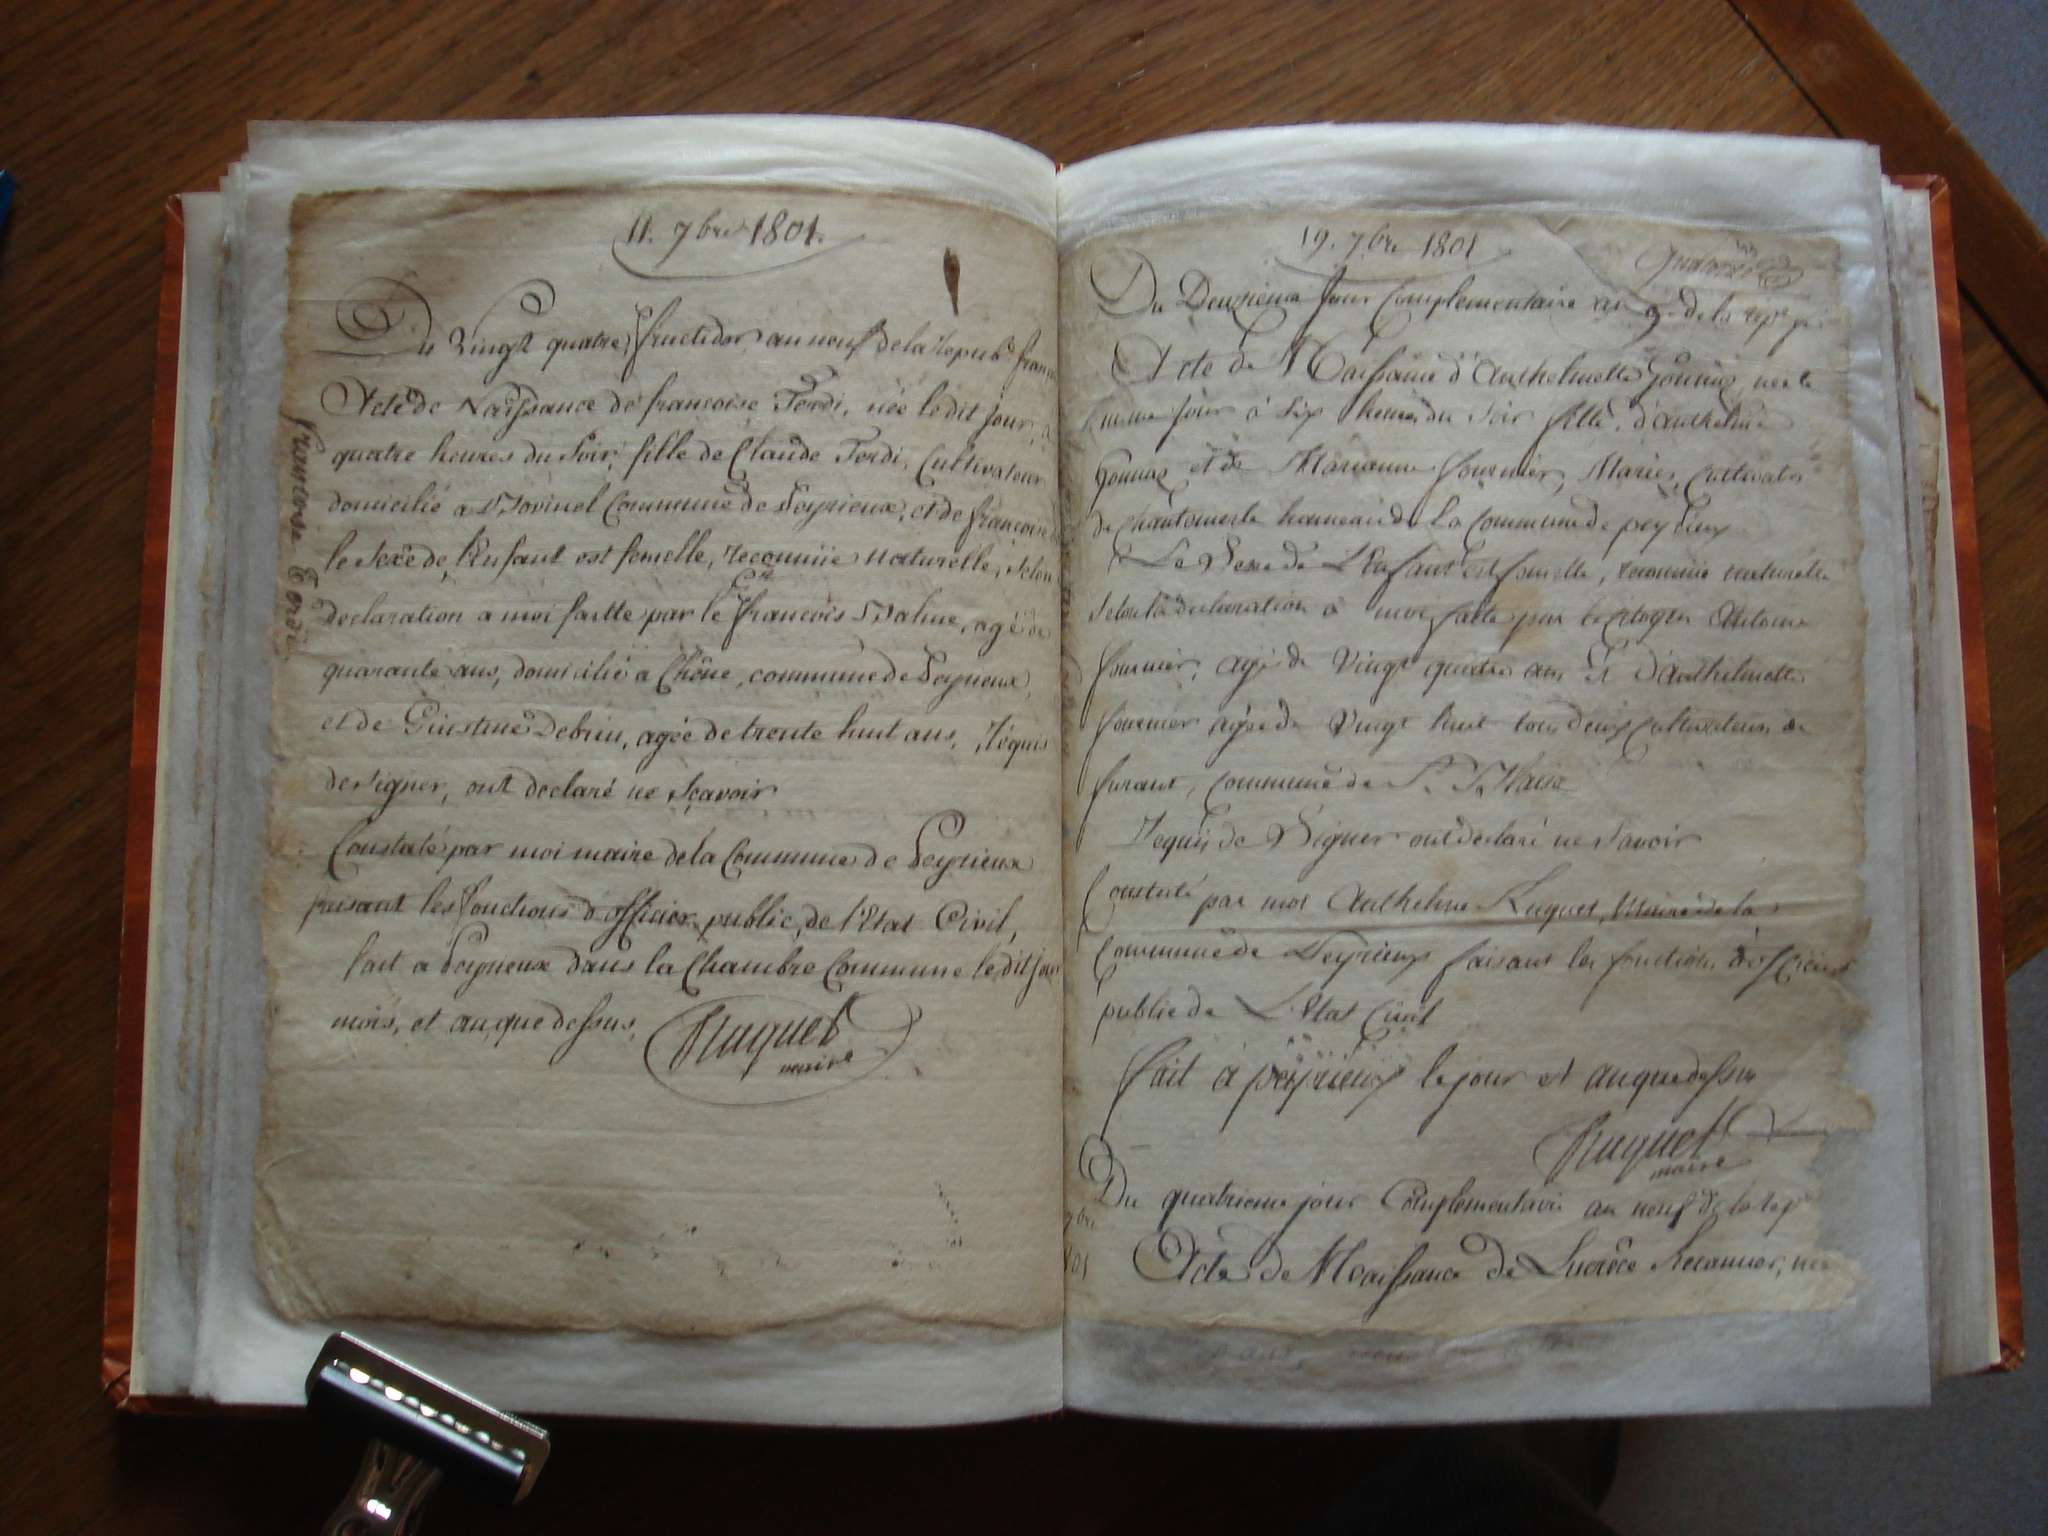 11. 7bre 1801.
Du Vingt quatre fructidor an neuf de la Repub. franc
Acte de Naissance de francoise Tordi, née le dit jour, a
quatre heures du Soir, fille de Claude Tordi, Cultivateur
domicilié a Commune de Peyrieux, et de francoise
le Sexe de l'Enfant est femelle, reconnüe naturelle, selon
declaration a moi faitte par le Cen francois agé de
quarante ans, domicilié a Chêne, commune de Peyrieux,
et de Debrun, agée de trente huit ans, réquis
de signer, ont declaré ne sçavoir
Constaté par moi maire de la Commune de Peyrieux
faisant les fonctions d'officier public, de l'Etat Civil,
fait a Peyrieux dans la Chambre Commune le dit jour
mois, et an, que dessus,
Ruquet
maire
francoise Tordi
19. 7bre 1801
Du Deuxieme jour Complementaire an 9. de la rep.
Acte de Naissance d'Anthelmette Gonnus, née le
même jour à Six heures du Soir fille d'Anthelme
Gonnus et de Marianne fournier, Mariés, Cultivateurs
de Chantemerle hameau de la Commune de peyrieux
Le Sexe de L'Enfant est femelle, reconnüe naturelle
Selon la declaration à moi faite par le citoyen Antoine
fournier, agé de Vingt quatre ans Et d'Anthelmette
fournier agée de Vingt huit tous deux Cultivateurs de
furant, Commune de St
Requis de Signer ont declaré ne Savoir
Constaté par moi Anthelme Ruquet, Maire de la
Commune de Peyrieux faisant les fonctions d'officier
public de L'Etat Civil
fait à peyrieux le jour et an que dessus
Ruquet
maire
Du quatrieme jour Complementaire an neuf de la rep
7bre
801
Acte de Naissance de Lucrèce Recamier, née